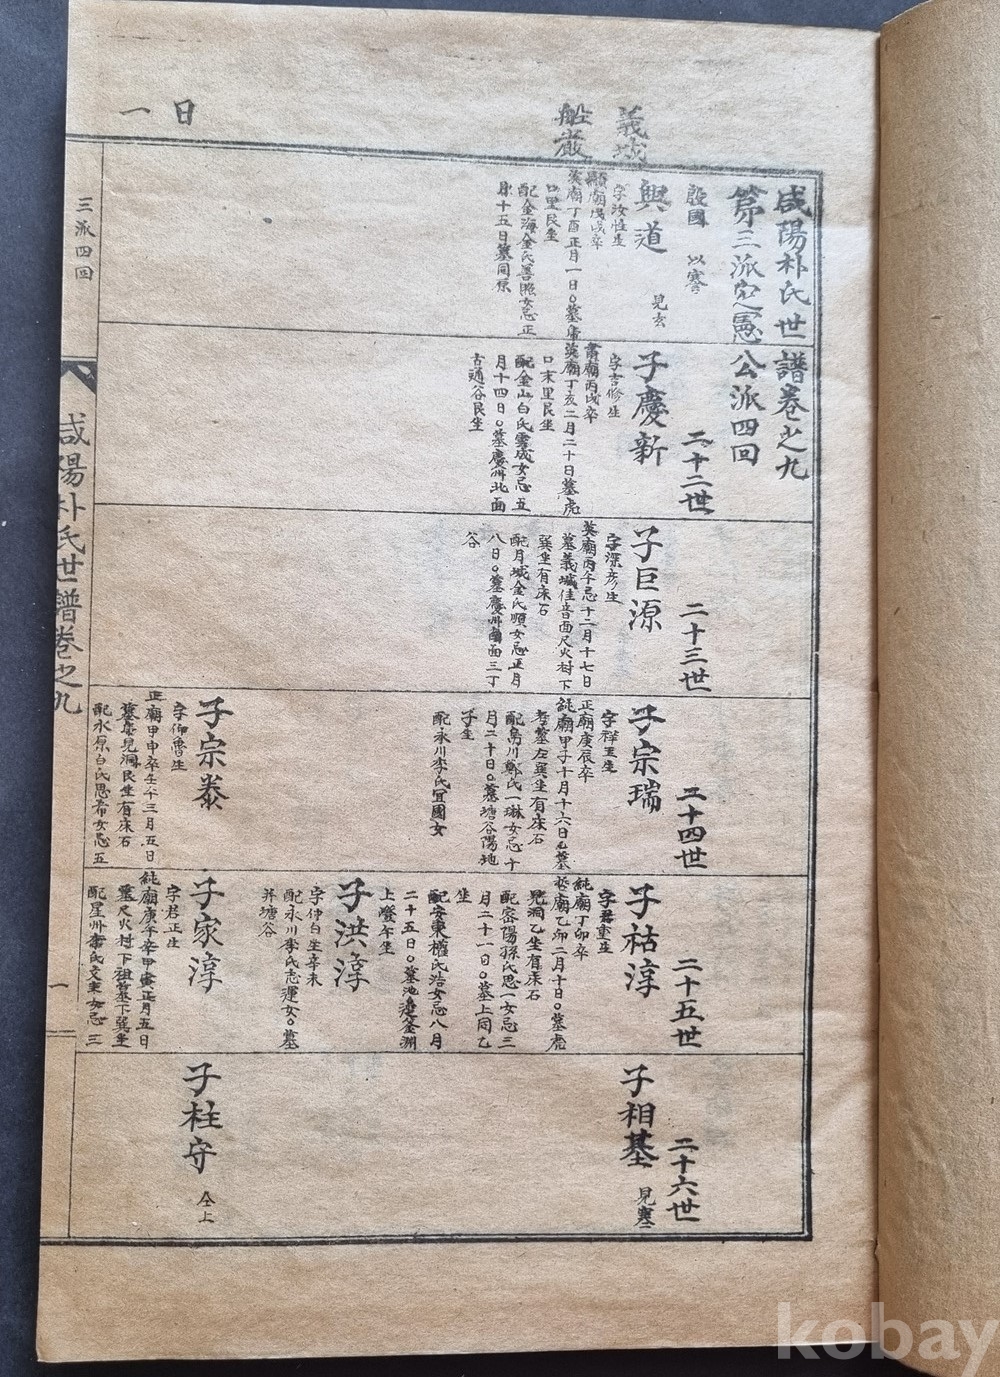 日一
義城
般巖
咸陽朴氏世譜卷之九
第三派定憲公派四回
殷國
興道
見玄
字汝恒生
顯廟戊戌卒
英廟丁酉正月一日○墓庫
口里艮坐
配金海金氏善照女忌正
月十五日墓同原
二十二世
子慶新
字吉修生
肅廟丙戌卒
英廟丁亥二月二十日墓虎
口末里艮坐
配金山白氏雲成女忌五
月十四日○墓慶州北面
古通谷艮坐
二十三世
子巨源
字深彦生
英廟丙午忌十二月十七日
墓義城佳音面尺火村下
巽坐有床石
配月城金氏順女忌正月
八日○墓慶州南面三丁
谷
二十四世
子宗瑞
字祥玉生
正廟庚辰卒
純廟甲子十月十六日○墓
考墓左巽坐有床石
配烏川鄭氏一琳女忌十
月二十日○墓塘谷陽地
子坐
配永川李氏宜國女
子宗泰
字仰魯生
正廟甲申卒壬午三月五日
墓庫見洞艮坐有床石
配水原白氏思希女忌五
二十五世
子祜淳
字君重生
純廟丁卯卒
哲廟乙卯二月十日○墓虎
見洞乙坐有床石
配密陽孫氏思一女忌三
月二十一日○墓上同乙
坐
配安東權氏浩女忌八月
二十五日○墓池邊釜淵
上嶝午坐
子洪淳
字仲白生辛未
配永川李氏志運女○墓
井塘谷
子家淳
字君正生
純廟庚午卒甲寅正月五日
墓尺火村下祖墓下巽坐
配星州李氏文東女忌三
二十六世
子相基
見寒二
子柱守
仝上
三派四回
咸陽朴氏世譜卷之九
一
kobay